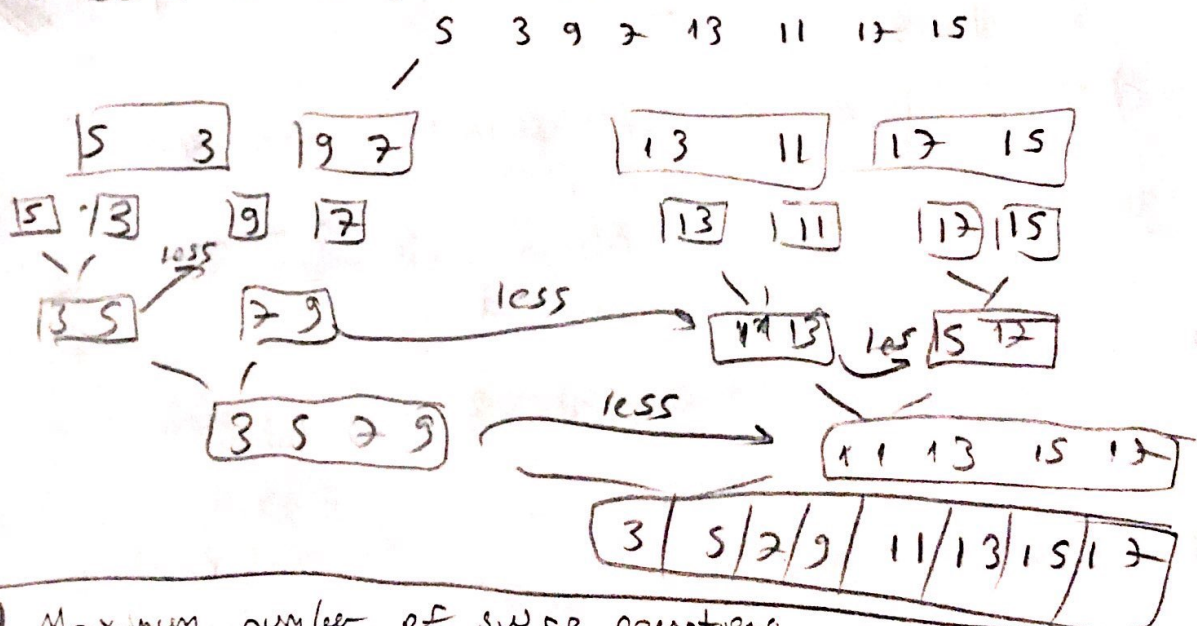 5 3 9 7 13 11 17 15
5 3 9 7 13 11 17 15
5 3 9 7 13 11 17 15
less
3 5 7 9 less 11 13 les 15 17
3 5 7 9 less 11 13 15 17
3 5 7 9 11 13 15 17
Maximum number of swap operations